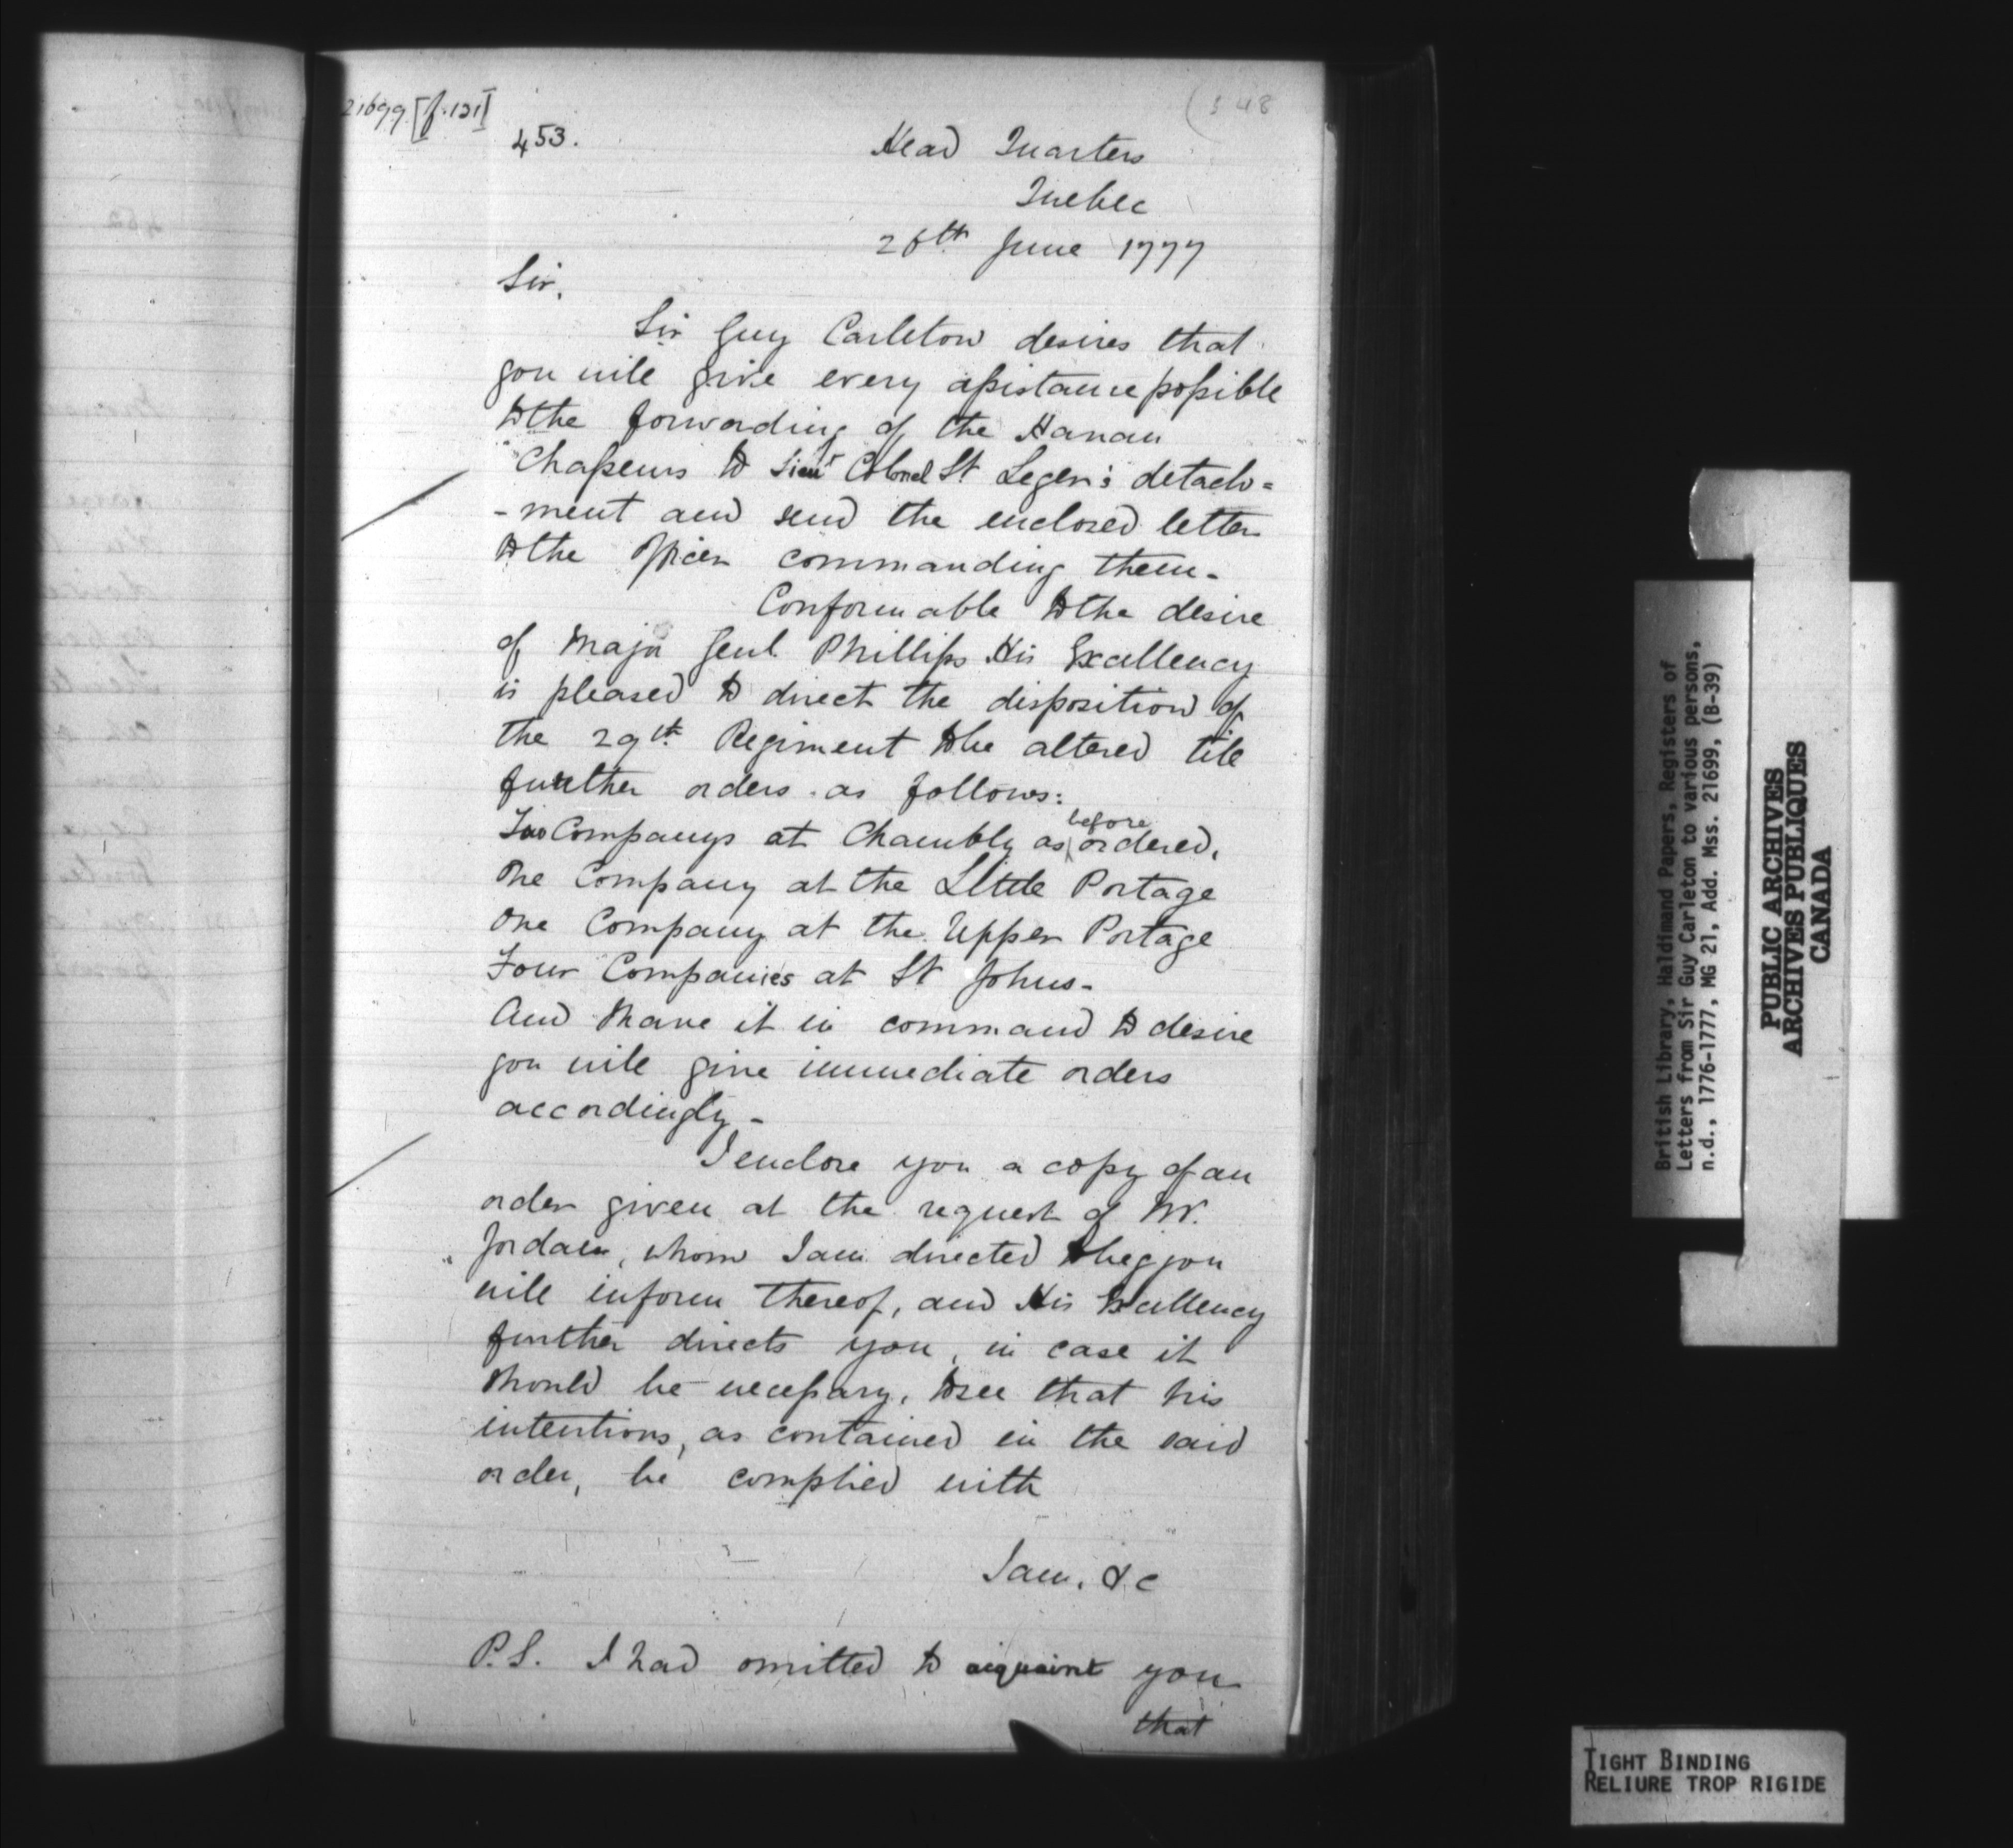 21699 [f.131]
(348
453.
Head Quarters
Quebec
26th June 1777
Sir,
Sir Guy Carleton desires that
you will give every assistance possible
to the forwarding of the Hanau
Chasseurs to Lieut Colonel St Leger's detach=
-ment and send the enclosed letter
to the officer commanding them-
Conformable to the desire
of Major Genl. Phillips His Excellency
is pleased to direct the disposition of
the 29th Regiment to be altered till
further orders as follows:
Two Companys at Chambly as before ordered,
One Company at the Little Portage
One Company at the Upper Portage
Four Companies at St Johns-
And I have it in command to desire
you will give immediate orders
accordingly-
I enclose you a copy of an
order given at the request of Mr.
Jordan, whom I am directed to beg you
will inform thereof, and His Excellency
further directs you, in case it
should be necessary, to see that his
intentions, as contained in the said
order, be complied with
I am, &c
P.S. I had omitted to acquaint you
that
British Library, Haldimand Papers, Registers of
Letters from Sir Guy Carleton to various persons,
n.d., 1776-1777, MG 21, Add. Mss. 21699, (B-39)
PUBLIC ARCHIVES
ARCHIVES PUBLIQUES
CANADA
TIGHT BINDING
RELIURE TROP RIGIDE